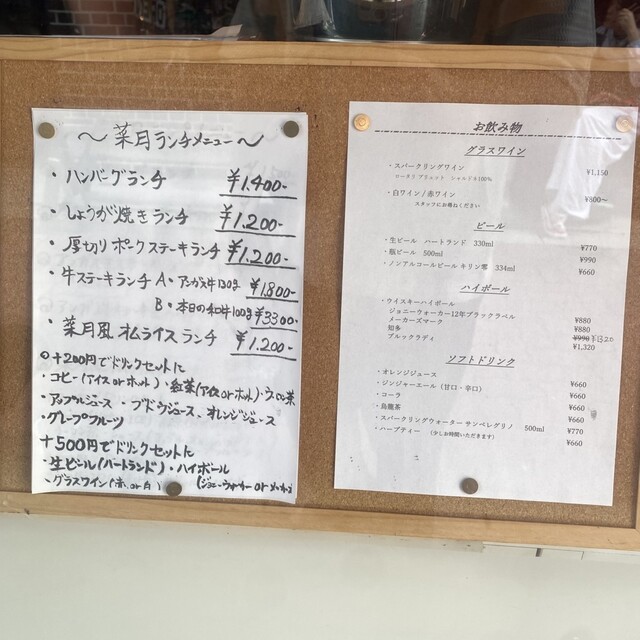 〜菜月ランチメニュー〜
・ハンバーグランチ ¥1.400-
・しょうが焼きランチ ¥1.200-
・厚切りポークステーキランチ ¥1.200-
・牛ステーキランチ A・アンガス牛130g ¥1.800-
B・本日の和牛100g ¥3300-
・菜月風オムライスランチ ¥1.200-
○+200円でドリンクセットに
・コーヒー(アイスorホット)・紅茶(アイスorホット)・ウーロン茶
・アップルジュース・ブドウジュース・オレンジジュース
・グレープフルーツ
+500円でドリンクセットに
・生ビール(ハートランド)・ハイボール
・グラスワイン(赤or白) (ジョニーウォーカーor
お飲み物
グラスワイン
・スパークリングワイン ¥1,150
シャルドネ100%
・白ワイン/赤ワイン ¥800〜
スタッフにお尋ねください
ビール
・生ビール ハートランド 330ml ¥770
・瓶ビール 500ml ¥990
・ノンアルコールビール キリン零 334ml ¥660
ハイボール
・ウイスキーハイボール
ジョニーウォーカー12年ブラックラベル ¥880
メーカーズマーク ¥880
知多 ¥990 ¥1320
ブルックラディ ¥1,320
ソフトドリンク
・オレンジジュース ¥660
・ジンジャーエール(甘口・辛口) ¥660
・コーラ ¥660
・烏龍茶 ¥660
・スパークリングウォーター サンペレグリノ 500ml ¥770
・ハーブティー (少しお時間いただきます) ¥660